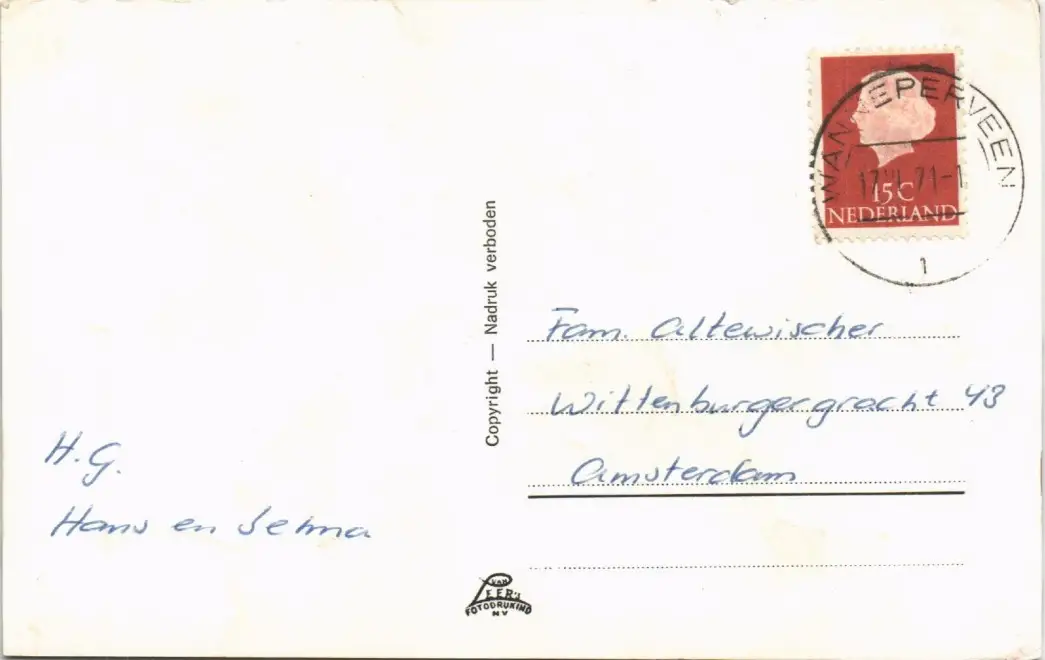 WANNEPERVEEN
17 VI 71-1
1
15C
NEDERLAND
Copyright — Nadruk verboden
Fam. Altewischer
Wittenburgergracht 43
Amsterdam
H.G.
Hans en Selma
VAN
LEER'S
FOTODRUKIND
NV